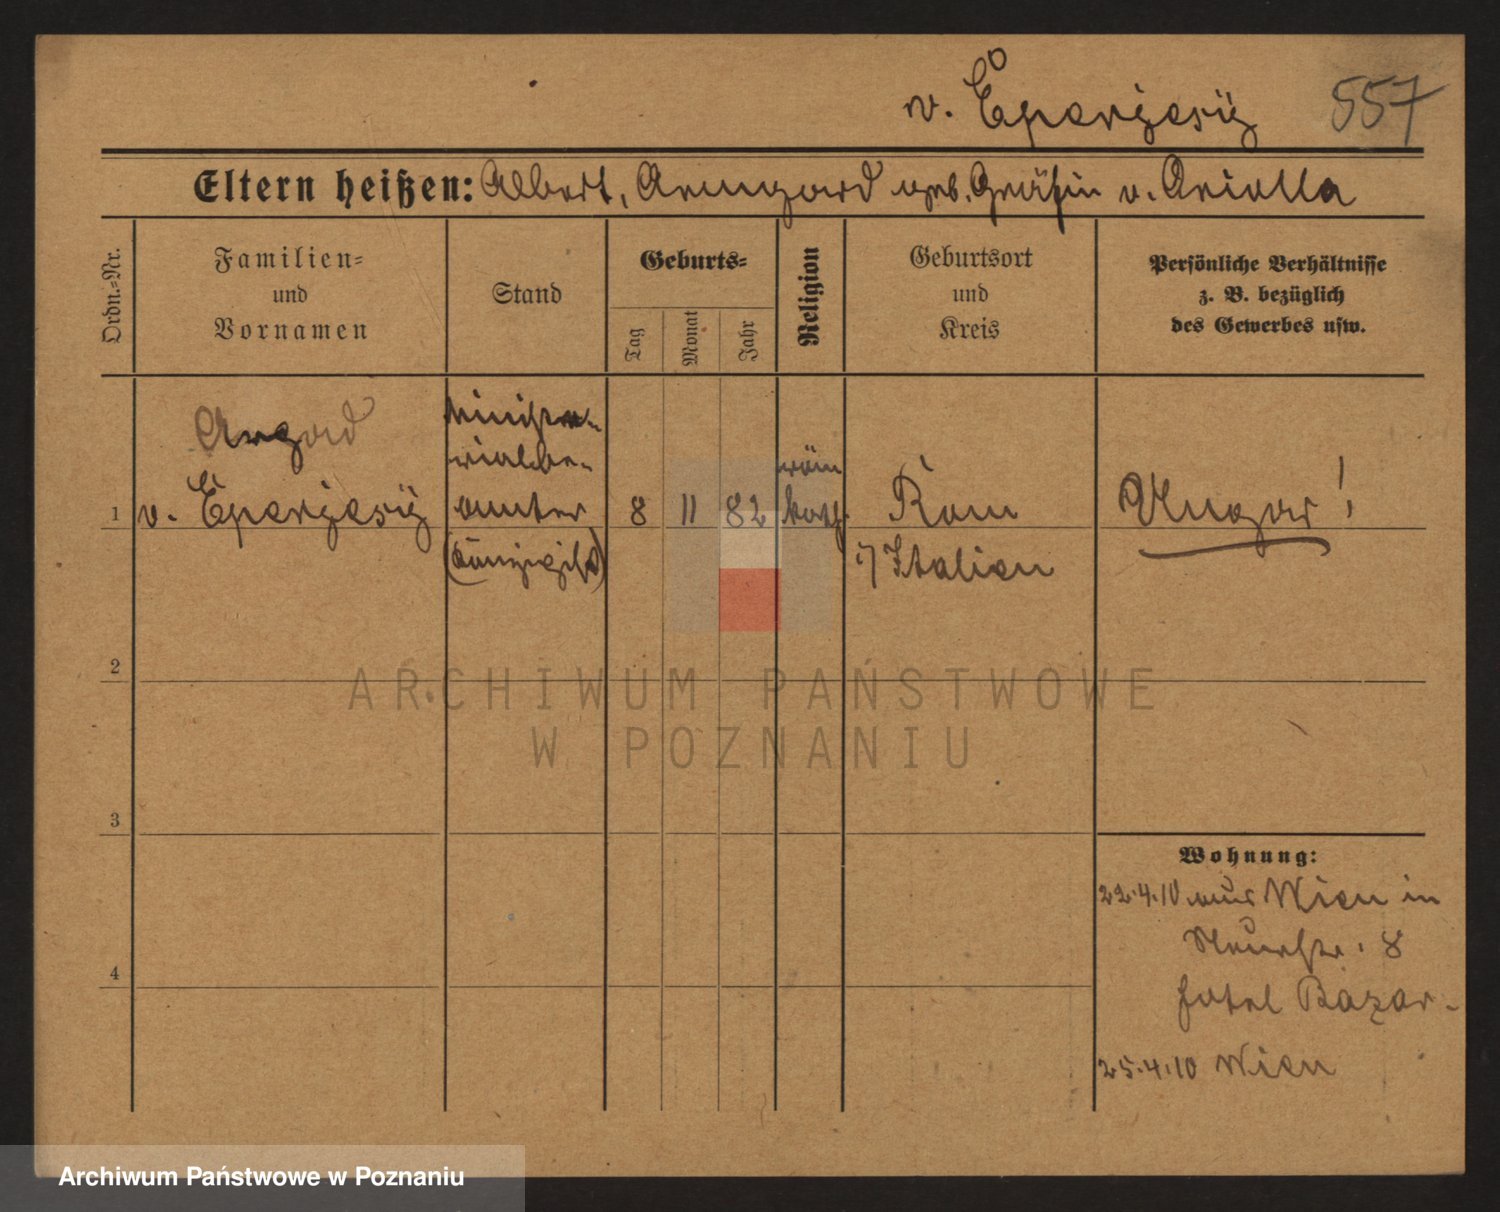 v. Eperjesÿ 557
Eltern heißen: Albert, Armgard geb. Gräfin v. Ariolla
Ordn.=Nr.
Familien=
und
Vornamen
Stand
Geburts=
Tag
Monat
Jahr
Religion
Geburtsort
und
Kreis
Persönliche Verhältnisse
z. B. bezüglich
des Gewerbes usw.
1
v. Eperjesÿ
Ministe-
rialbe-
amter
8 11 82
röm
kath.
Rom
i/ Italien
Ungar!
2
3
4
Wohnung:
22.4.10 aus Wien in
Neuestr. 8
Hotel Bazar-
25.4.10 Wien
ARCHIWUM PAŃSTWOWE
W POZNANIU
Archiwum Państwowe w Poznaniu